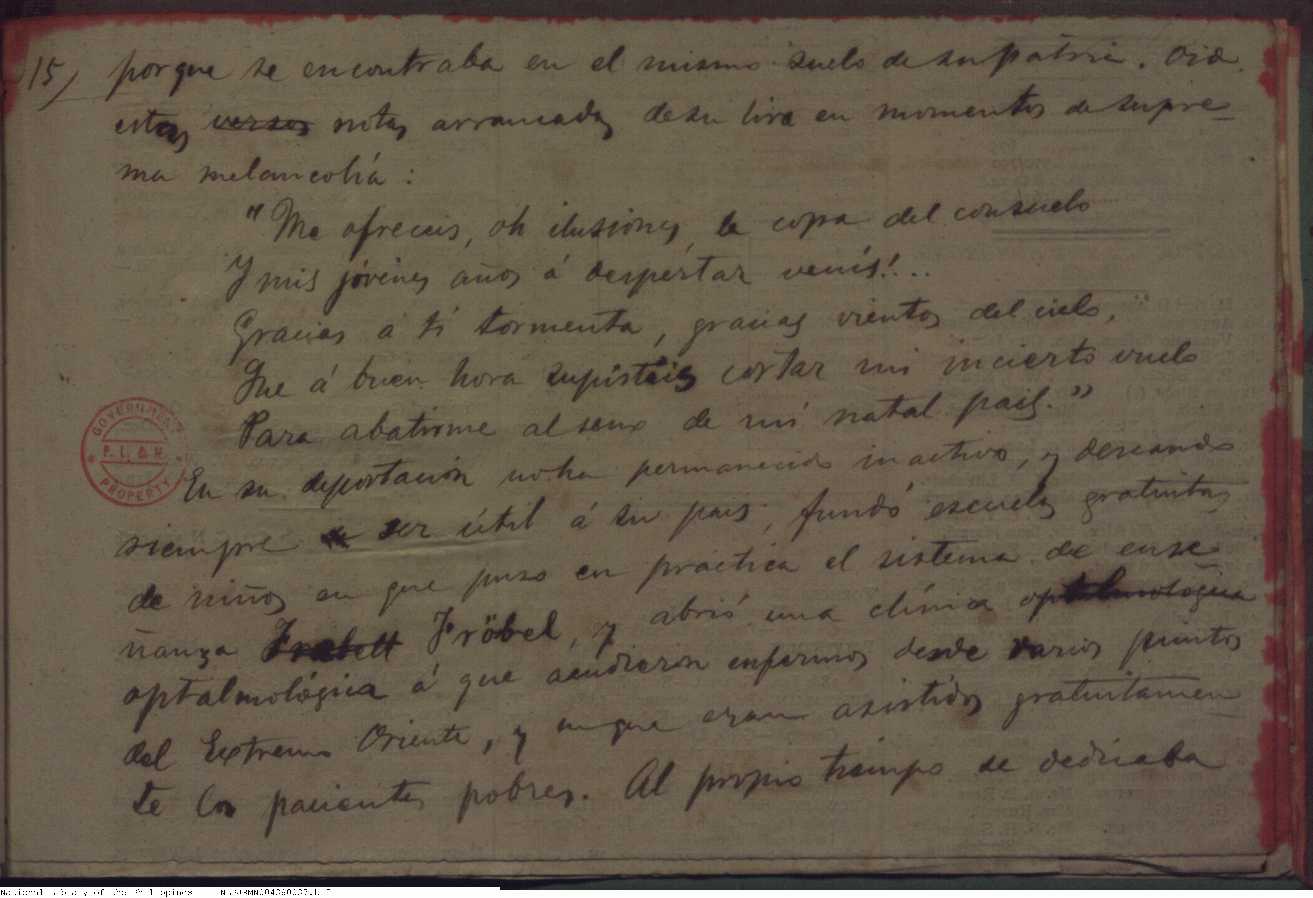 15) porque se encontraba en el mismo suelo de su pátria. Oid
estas versos notas arrancadas de su lira en momentos de supre-
ma melancoliá:
"Me ofreceis, oh ilusiones, la copa del consuelo
Y mis jóvenes años á despertar venís!...
Gracias á tí tormenta, gracias vientos del cielo,
Que á buen hora supisteis cortar mi incierto vuelo
Para abatirme al seno de mi natal país."
En su deportación no ha permanecido inactivo, y deseando
siempre ser útil á su pais, fundó escuelas gratuitas
de niños en que puso en práctica el sistema de ense
ñanza Frabell Fröbel, y abrió una clínica optalmológica
optalmológica á que acudieron enfermos desde varios puntos
del Extremo Oriente, y en que eran asistidos gratuitamen
te los pacientes pobres. Al propio tiempo se dedicaba
GOVERNMENT
P. I. & H.
PROPERTY
National Library of the Philippines